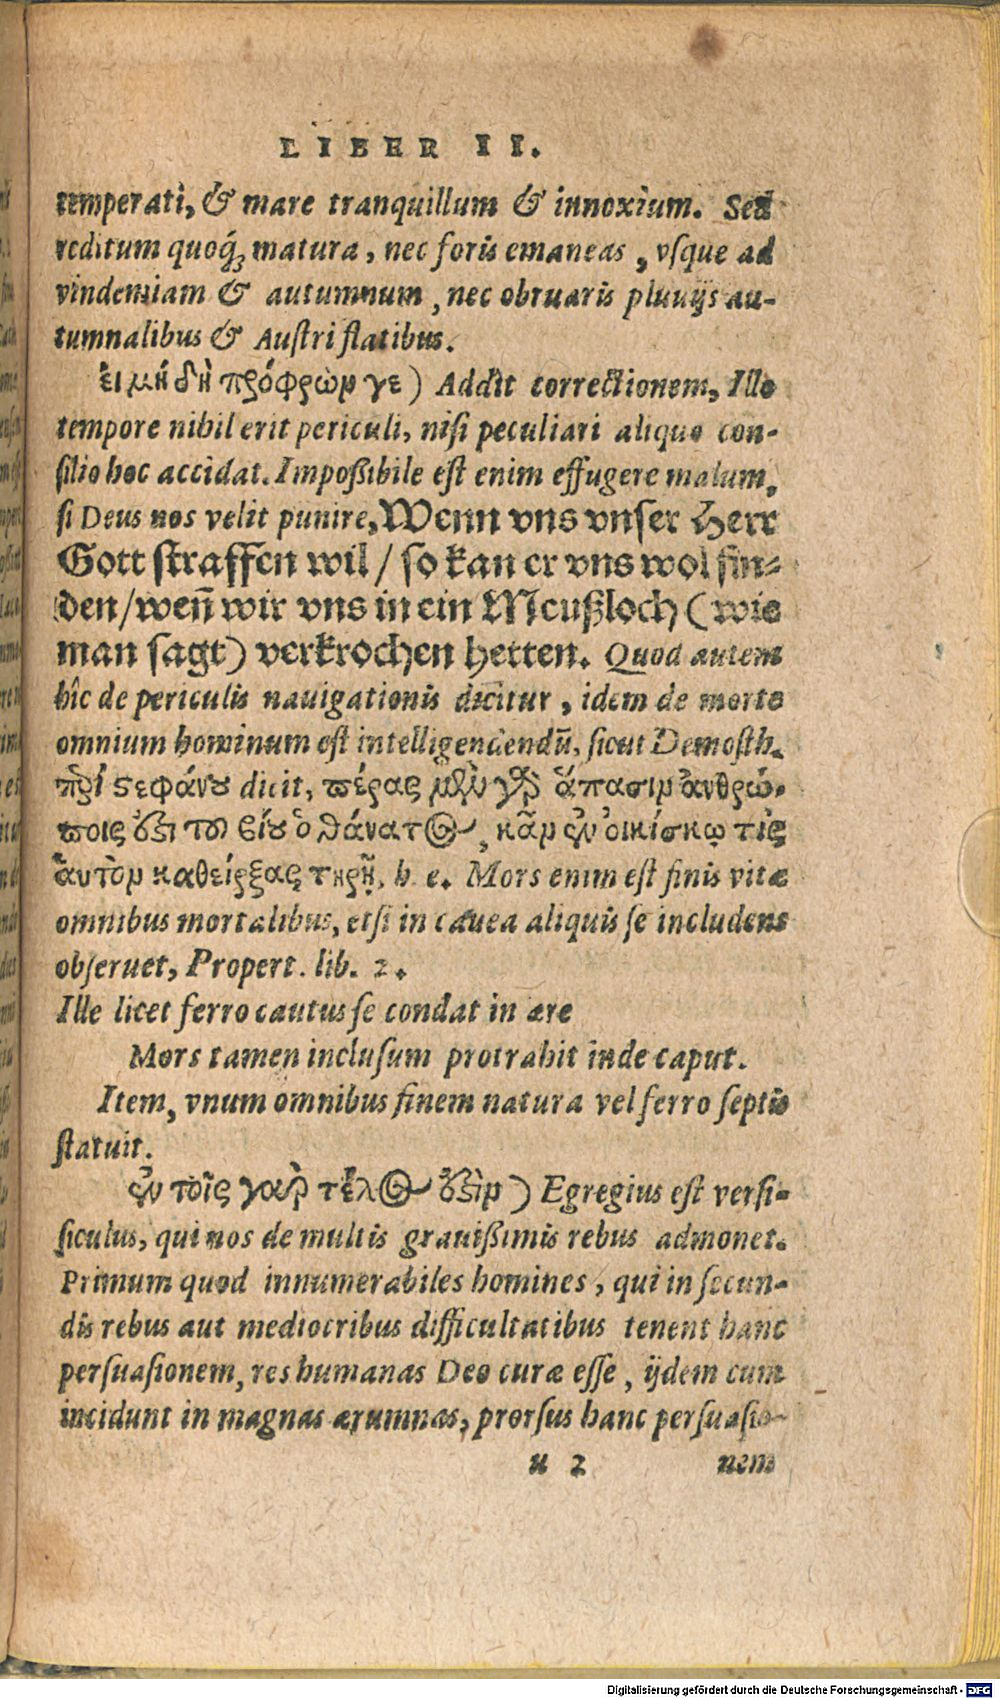 LIBER II.
temperati, & mare tranquillum & innoxium. Sed
reditum quoq́; matura, nec foris emaneas, vsque ad
vindemiam & autumnum, nec obruaris pluuijs au-
tumnalibus & Austri flatibus.
εἰ μὴ δὴ πρόφρων γε) Addit correctionem, Illo
tempore nihil erit periculi, nisi peculiari aliquo con-
silio hoc accidat. Impoßibile est enim effugere malum,
si Deus nos velit punire, Wenn vns vnser Herr
Gott straffen wil / so kan er vns wol fin-
den / weñ wir vns in ein Meußloch (wie
man sagt) verkrochen hetten. Quod autem
hîc de periculis nauigationis dicitur, idem de morte
omnium hominum est intelligendendũ, sicut Demosth.
περὶ στεφάνου dicit, πέρας μὲν γὰρ ἅπασιν ἀνθρώ-
ποις ἐστὶ τοῦ βίου ὁ θάνατος, κἂν ἐν οἰκίσκῳ τὶς
ἁυτὸν καθείρξας τηρῇ, h. e. Mors enim est finis vitæ
omnibus mortalibus, etsi in cauea aliquis se includens
obseruet, Propert. lib. 2.
Ille licet ferro cautus se condat in ære
Mors tamen inclusum protrahit inde caput.
Item, vnum omnibus finem natura vel ferro septis
statuit.
ἐν τοῖς γὰρ τέλος ἐστὶν) Egregius est versi-
siculus, qui nos de multis grauißimis rebus admonet.
Primum quod innumerabiles homines, qui in secun-
dis rebus aut mediocribus difficultatibus tenent hanc
persuasionem, res humanas Deo curæ esse, ijdem cum
incidunt in magnas ærumnas, prorsus hanc persuasio-
u 2 nem
Digitalisierung gefördert durch die Deutsche Forschungsgemeinschaft - DFG